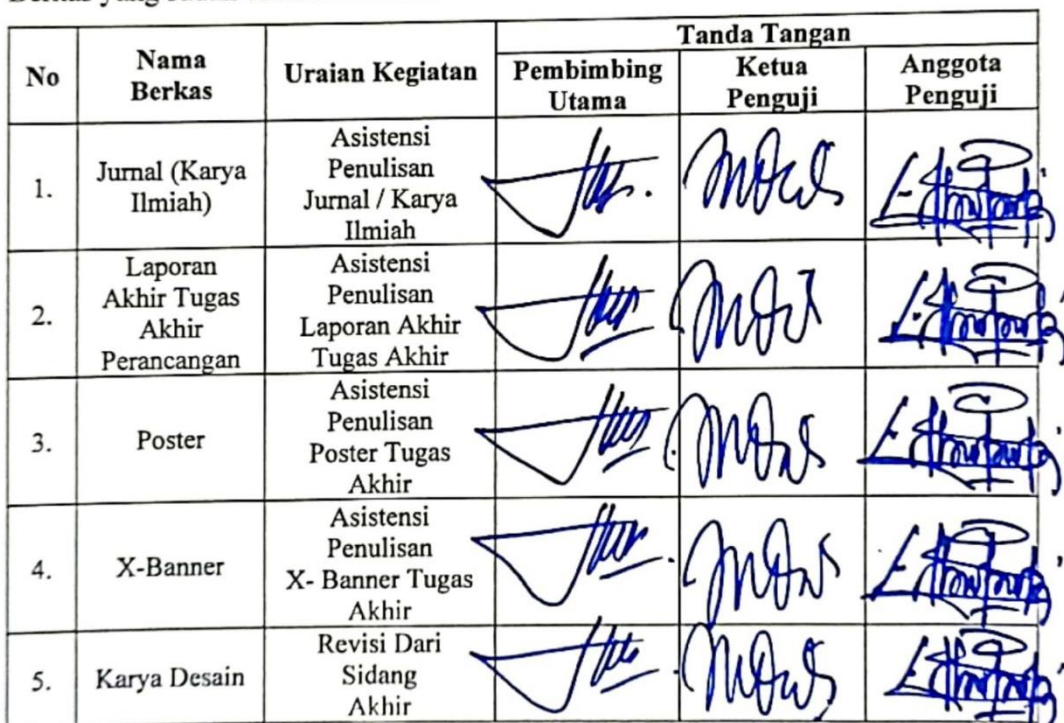 Tanda Tangan
No
Nama
Berkas
Uraian Kegiatan
Pembimbing
Utama
Ketua
Penguji
Anggota
Penguji
1.
Jurnal (Karya
Ilmiah)
Asistensi
Penulisan
Jurnal / Karya
Ilmiah
2.
Laporan
Akhir Tugas
Akhir
Perancangan
Asistensi
Penulisan
Laporan Akhir
Tugas Akhir
3.
Poster
Asistensi
Penulisan
Poster Tugas
Akhir
4.
X-Banner
Asistensi
Penulisan
X- Banner Tugas
Akhir
5.
Karya Desain
Revisi Dari
Sidang
Akhir